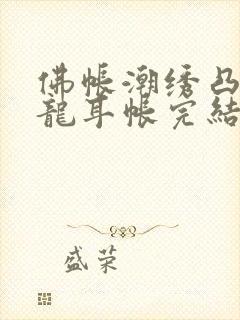 佛帐潮绣凸
龍耳帐完結
盛荣